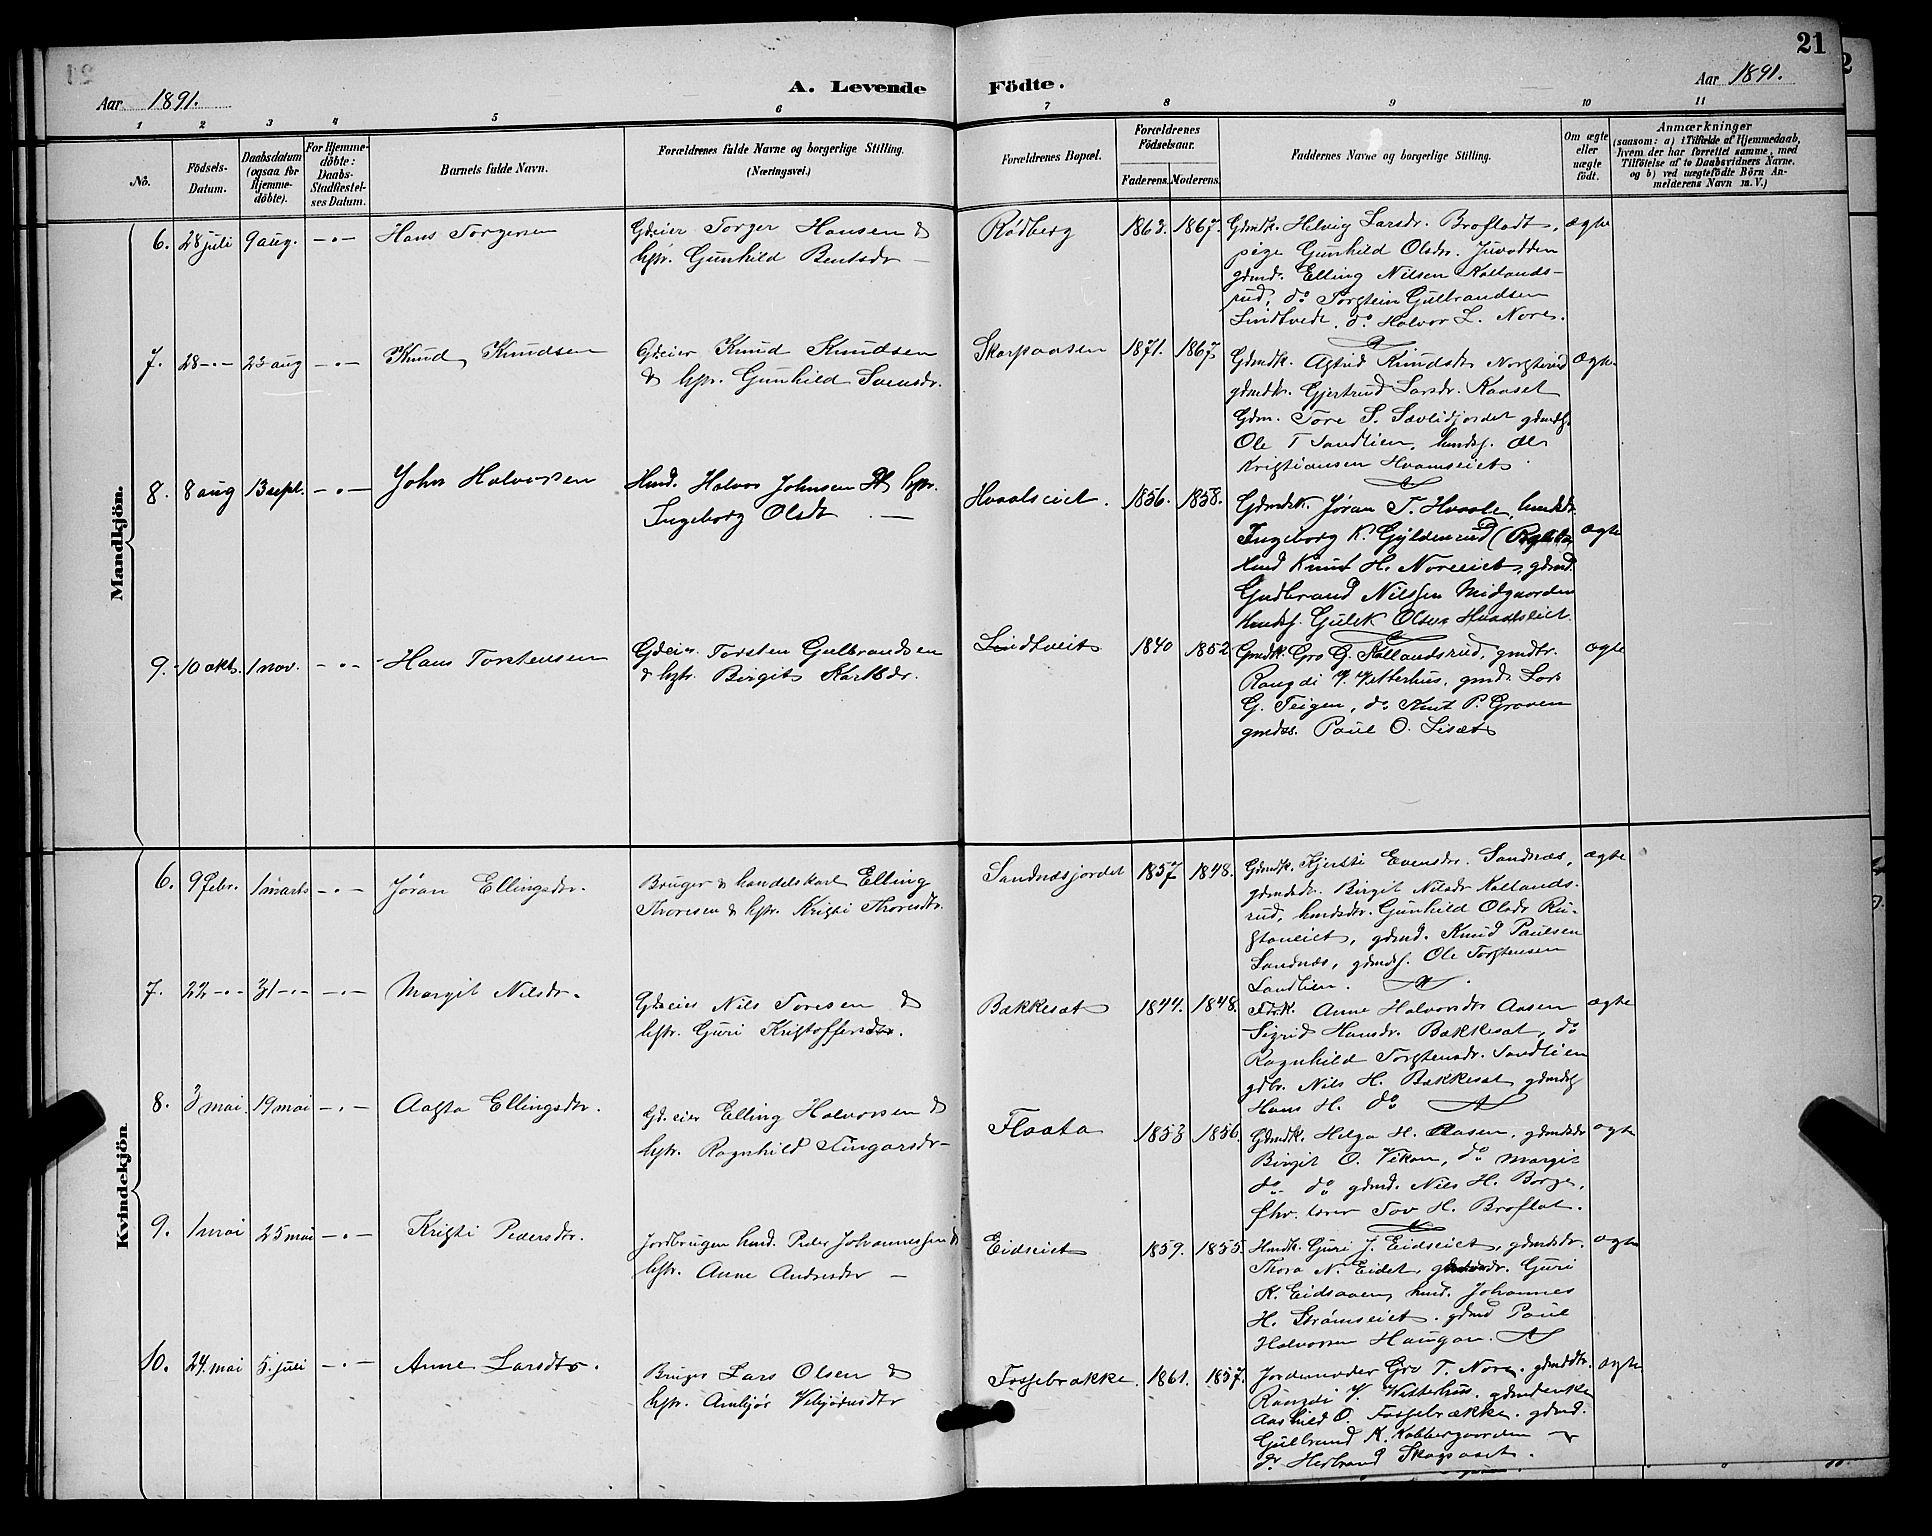 21
Aar 1891.
A. Levende Födte.
Aar 1891.
1 2 3 4 5 6 7 8 9 10 11
No.
Födsels-Datum.
Daabsdatum (ogsaa for Hjemme-döbte).
For Hjemme-döbte: Daabs-Stadfæstel-ses Datum.
Barnets fulde Navn.
Forældrenes fulde Navne og borgerlige Stilling. (Næringsvei.)
Forældrenes Bopæl.
Forældrenes Födselsaar.
Faderens. Moderens.
Faddernes Navne og borgerlige Stilling.
Om ægte eller uægte födt.
Anmærkninger
(saasom: a) i Tilfælde af Hjemmedaab,
hvem der har forrettet samme, med
Tilföielse af to Daabsvidners Navne,
og b) ved uægtefödte Börn An-
melderens Navn m. V.)
Mandkjön.
6. 28 juli 9 aug. -"- Hans Torgersen
Gdeier Torger Hansen &
hstr. Gunhild Bentsdr —
Rödberg 1863. 1867.
Gdmdk. Helvig Larsdr. Broflodt, ægte
pige Gunhild Olsdr. Juvodden
gdmd. Elling Nilsen Kallands-
rud, do Torstein Gulbrandsen
Lindtvedt, do Halvor L. Nore.
7. 28-"- 23 aug -"- Knud Knudsen
Gdeier Knud Knudsen
& hstr. Gunhild Svensdr.
Skarpaasen 1871. 1867
Gdmdk. Astrid Knudsdr Norsterud ægte
gdmdk. Gjertrud Larsdr. Kaaset
Gdm. Tore S. Sævlidjordet gdmds.
Ole T Sandlien, hmds. Ole
Kristiansen Hvamseiet
8. 8 aug 13 sept. -"- John Halvorsen
Hmd. Halvor Johnsen & hstr.
Ingeborg Olsdt —
Hvaalseiet. 1856. 1858.
Gdmdsk. Jøran T. Hvaale, hmdsdr.
Ingeborg K. Gyldenrud ægte
Hmd Knut H. Noreeiet, gdmd.
Gudbrand Nilssen Midgaarden
hmds. Gulek Olsen Hvaalseiet.
9. 10 okt. 1 nov. -"- Hans Torstensen
Gdeier Torsten Gulbrandsen
& hstr. Birgit Karlsdr.
Lindtveit 1840 1852
Gmdk. Gro G. Kallandsrud, gmdtr. ægte
Rangdi V. Vetterhus, gmds Lars
G. Teigen, do Knut P. Graven
gmds. Paul O. Liset
Kvindekjön.
6. 9 febr. 1 marts -"- Jøran Ellingsdr.
Bruger & handelskarl Elling
Thoresen & hstr. Kristi Thoresdtr.
Sandnæsjordet 1857 1848.
Gdmdk. Kjersti Evensdr. Sandnæs, ægte
gdmdsdr. Birgit Nilsdr Kallands-
rud, hmdsdtr. Gunhild Olsdr Ru-
staneiet, gdmd. Knud Paulsen
Sandnæs, gdmds. Ole Torstensen
Sandlien.
7. 22-"- 31-"- -"- Margit Nilsdr.
Gdeier Nils Toresen &
hstr. Guri Kristoffersdtr.
Bakkesæt 1844. 1848.
Anne Halvorsdtr Aasen ægte
Sigrid Hansdr. Bakkesæt, do
Ragnhild Torstensdr. Sandlien
gdbr. Nils H. Bakkesæt gdmds
Hans H. do
8. 3 mai 19 mai -"- Aasta Ellingsdtr.
Gdeier Elling Halvorsen &
hstr. Ragnhild Tingarsdr-
Flaata 1853 1856.
Gdmdk. Helga H. Aasen, gdmdsdr ægte
Birgit O. Vikan, do Margit
do do gdmd. Nils H. Borge,
fhv. lærer Tov H. Broflot.
9. 1 mai 25 mai -"- Kristi Pedersdtr.
Jordbruger hmd. Peder Johannessen &
hstr. Anne Andresdtr —
Eidseiet 1859. 1855.
Hmdk. Guri J. Eidseiet, gdmdsdr. ægte
Thora N. Eidet, gdmdsdr. Guri
K. Eidsaaen, hmd. Johannes
H. Strømseiet, gdmd Paul
Halvorsen Haugan.
10. 24. mai 5. juli -"- Anne Larsdtr.
Bruger Lars Olsen &
hstr. Ambjør Vebjørnsdtr
Fossebrække. 1861. 1857.
Jordemoder Gro T. Nore, gdmddtr. ægte
Rangdi V. Vetterhus, gdmdenke
Aashild O. Fossebrække. gdmd.
Gulbrand K. Kobbergaarden
do Herbrand Skogsaset.